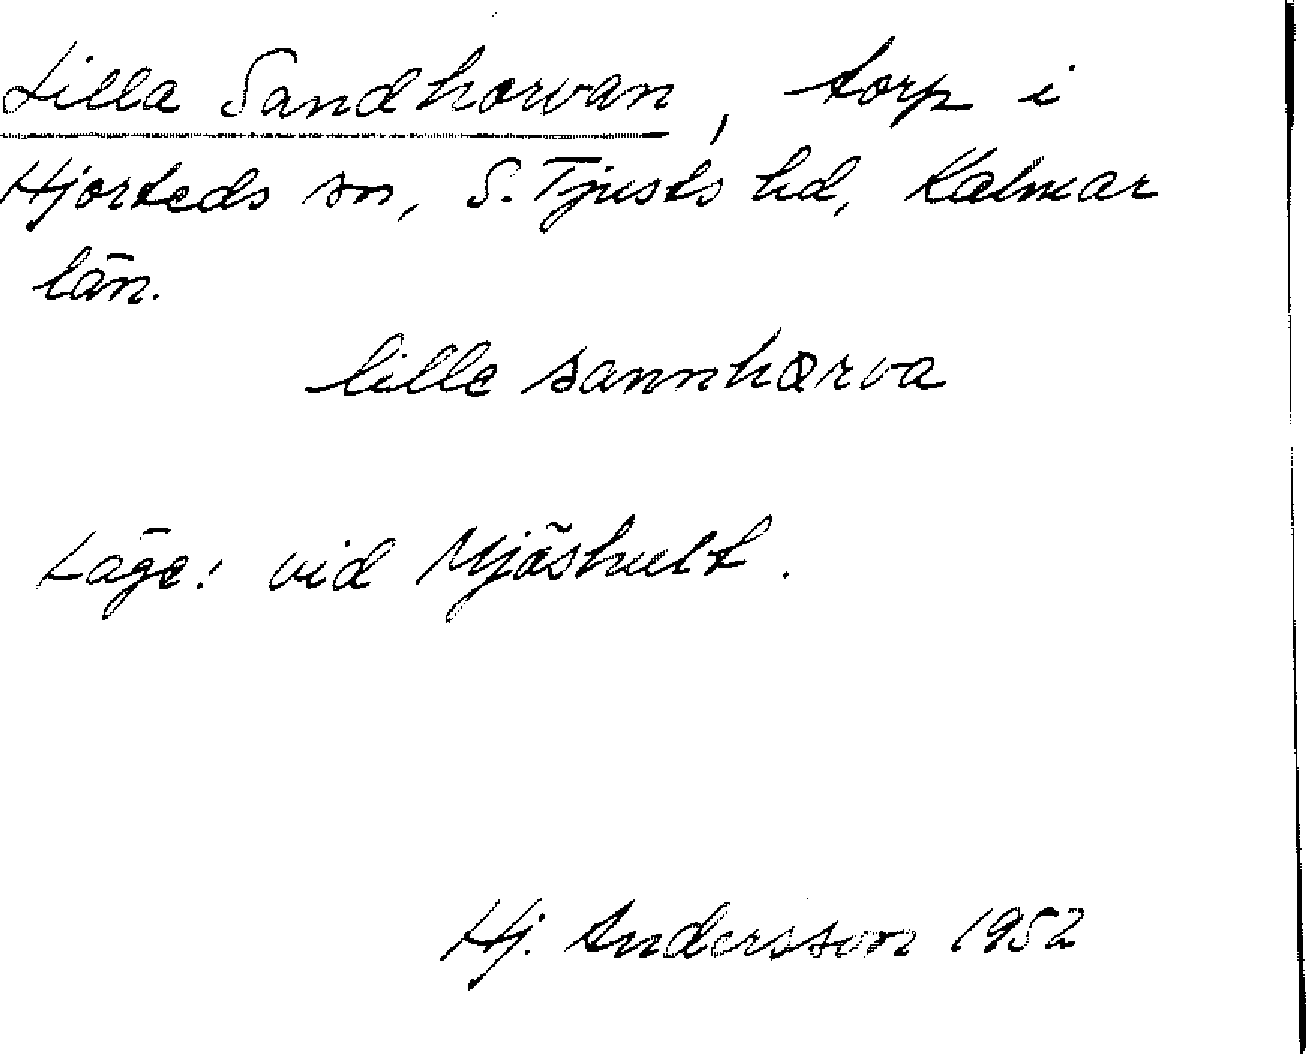 Lilla Sandhorvan, torp i
Hjorteds sn, S. Tjusts hd, Kalmar
län.
lille sannhorva
Läge: vid Mjöshult.
Hj. Andersson 1952